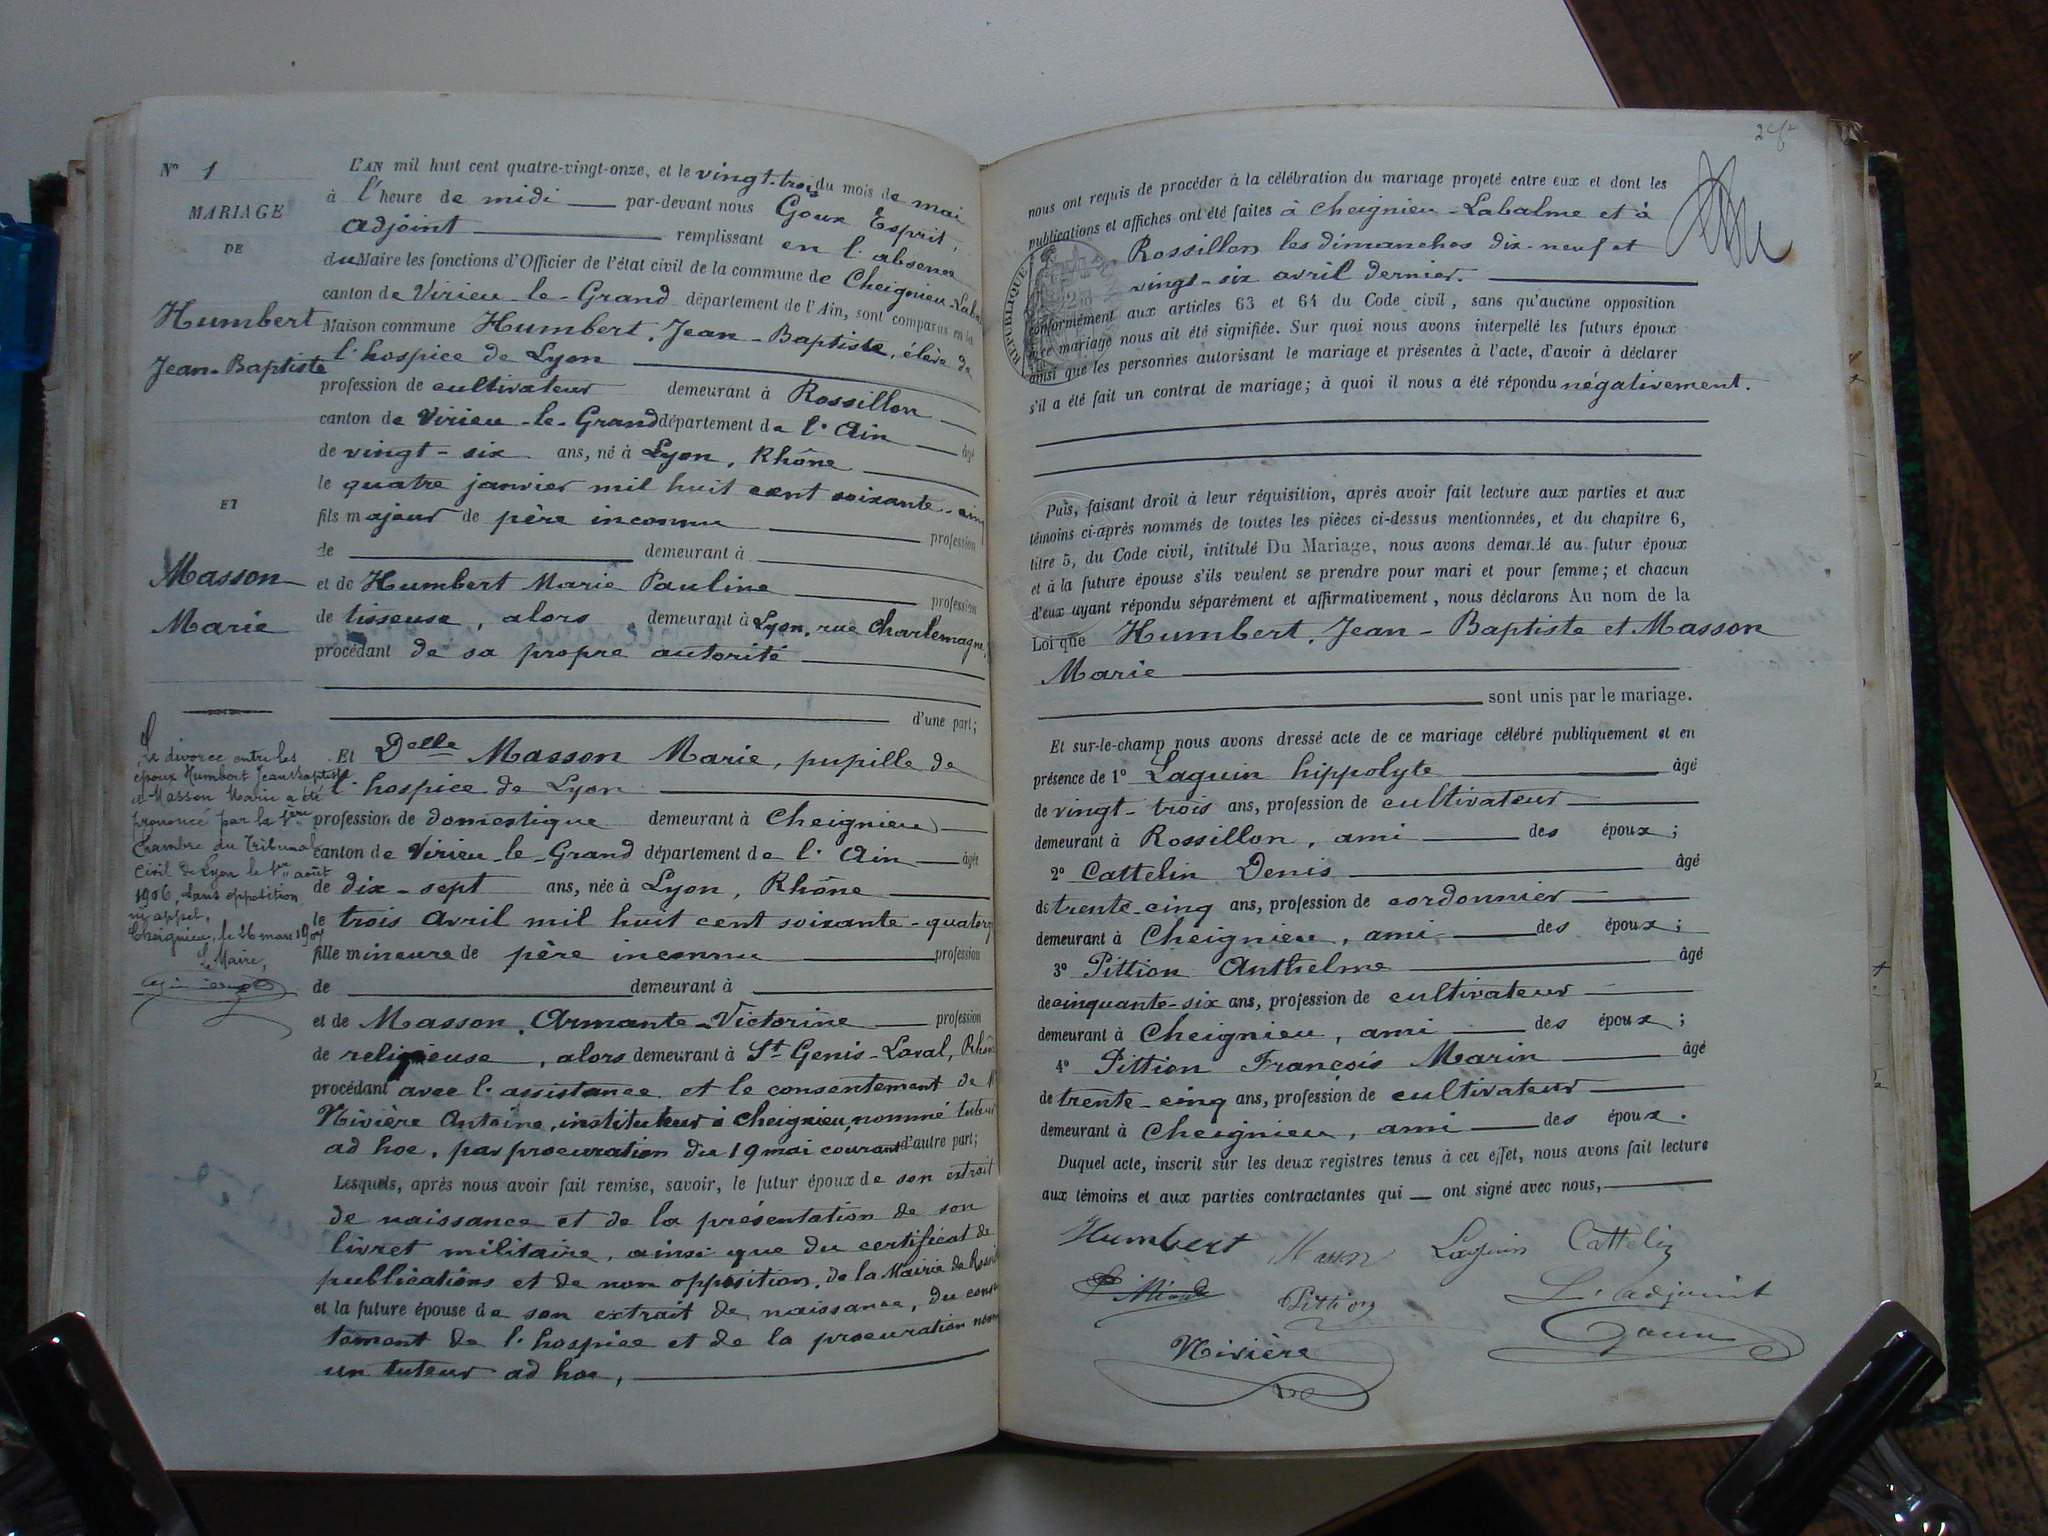 N° 1
MARIAGE
DE
Humbert
Jean-Baptiste
ET
Masson
Marie
Le divorce entre les
époux Humbert Jean Baptiste
et Masson Marie a été
prononcé par la 1ère
Chambre du Tribunal
Civil de Lyon le 1er août
1906, sans opposition
ni appel.
Cheignieu, le 26 mars 1907
Le Maire,
L'AN mil huit cent quatre-vingt-onze, et le vingt-trois du mois de mai
à l'heure de midi par-devant nous Goux Esprit,
adjoint remplissant en l'absence
du Maire les fonctions d'Officier de l'état civil de la commune de Cheignieu-Laba
canton de Virieu-le-Grand département de l'Ain, sont comparus en la
Maison commune Humbert, Jean-Baptiste, élève de
l'hospice de Lyon
profession de cultivateur demeurant à Rossillon
canton de Virieu-le-Grand département de l'Ain âgé
de vingt-six ans, né à Lyon, Rhône
le quatre janvier mil huit cent soixante-cinq
fils majeur de père inconnu profession
de demeurant à
et de Humbert Marie Pauline profession
de tisseuse, alors demeurant à Lyon, rue Charlemagne,
procédant de sa propre autorité
d'une part;
Et Delle Masson Marie, pupille de
l'hospice de Lyon
profession de domestique demeurant à Cheignieu
canton de Virieu-le-Grand département de l'Ain âgée
de dix-sept ans, née à Lyon, Rhône
le trois avril mil huit cent soixante-quatorz
fille mineure de père inconnu profession
de demeurant à
et de Masson, Armante-Victorine profession
de religieuse, alors demeurant à St Genis-Laval, Rhôn
procédant avec l'assistance et le consentement de M
Nivière Antoine, instituteur à Cheignieu, nommé tuteur
ad hoc, par procuration du 19 mai courant d'autre part;
Lesquels, après nous avoir fait remise, savoir, le futur époux de son extrait
de naissance et de la présentation de son
livret militaire, ainsi que du certificat de
publications et de non opposition, de la Mairie de Rossil
et la future épouse de son extrait de naissance, du consen
tement de l'hospice et de la procuration nomm
un tuteur ad hoc,
nous ont requis de procéder à la célébration du mariage projeté entre eux et dont les
publications et affiches ont été faites à Cheignieu-Labalme et à
Rossillon les dimanches dix-neuf et
vingt-six avril dernier.
conformément aux articles 63 et 64 du Code civil, sans qu'aucune opposition
à ce mariage nous ait été signifiée. Sur quoi nous avons interpellé les futurs époux
ainsi que les personnes autorisant le mariage et présentes à l'acte, d'avoir à déclarer
s'il a été fait un contrat de mariage; à quoi il nous a été répondu négativement.
Puis, faisant droit à leur réquisition, après avoir fait lecture aux parties et aux
témoins ci-après nommés de toutes les pièces ci-dessus mentionnées, et du chapitre 6,
titre 5, du Code civil, intitulé Du Mariage, nous avons demandé au futur époux
et à la future épouse s'ils veulent se prendre pour mari et pour femme; et chacun
d'eux ayant répondu séparément et affirmativement, nous déclarons Au nom de la
Loi que Humbert, Jean-Baptiste et Masson
Marie
sont unis par le mariage.
Et sur-le-champ nous avons dressé acte de ce mariage célébré publiquement et en
présence de 1° Laguin hippolyte âgé
de vingt-trois ans, profession de cultivateur
demeurant à Rossillon, ami des époux;
2° Cattelin Denis âgé
de trente-cinq ans, profession de cordonnier
demeurant à Cheignieu, ami des époux;
3° Pittion Anthelme âgé
de cinquante-six ans, profession de cultivateur
demeurant à Cheignieu, ami des époux;
4° Pittion François Marin âgé
de trente-cinq ans, profession de cultivateur
demeurant à Cheignieu, ami des époux.
Duquel acte, inscrit sur les deux registres tenus à cet effet, nous avons fait lecture
aux témoins et aux parties contractantes qui ont signé avec nous,
Humbert Masson Laguin Cattelin
Pittion L'adjoint
Nivière Goux
RÉPUBLIQUE